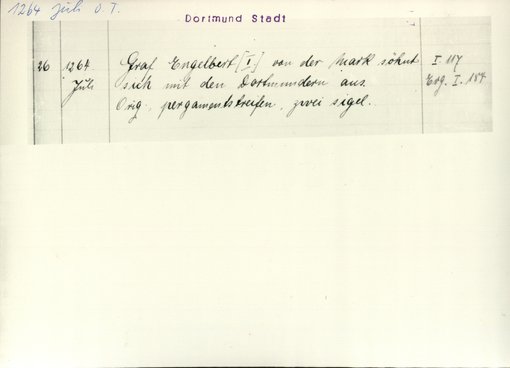 1264 Juli O. T.
Dortmund Stadt
26 1264 Graf Engelbert [I] von der Mark söhnt I 117
Juli sich mit den Dortmundern aus Erg. I. 154
Orig., pergamentstreifen, zwei sigel.